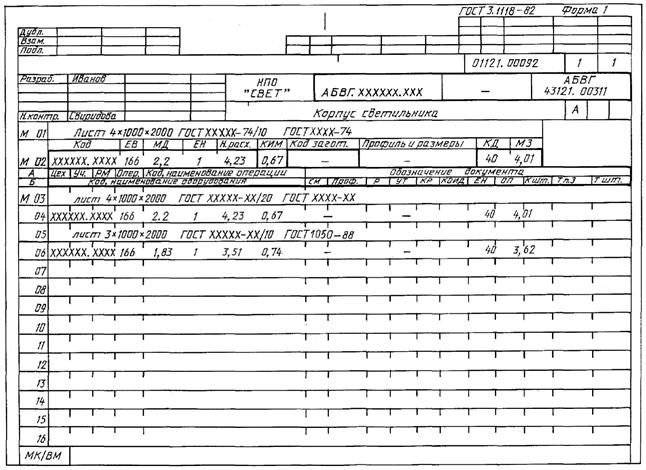 ГОСТ 3.1118-82 Форма 1
Дубл.
Взам.
Подл.
01121.00092 1 1
Разраб. Иванов НПО "СВЕТ" АБВГ.XXXXXX.XXX — АБВГ 43121.00311
Н.контр. Свиридова Корпус светильника А
М 01 Лист 4×1000×2000 ГОСТ XXXXX-74/10 ГОСТ XXXX-74
Код ЕВ МД ЕН Н.расх. КИМ Код загот. Профиль и размеры КД МЗ
М 02 XXXXXX.XXXX 166 2,2 1 4,23 0,67 — — 40 4,01
А Цех Уч. РМ Опер. Код, наименование операции Обозначение документа
Б Код, наименование оборудования СМ Проф. Р УТ КР КОИД ЕН ОП Кшт. Тп.з Тшт.
М 03 лист 4×1000×2000 ГОСТ XXXXX-XX/20 ГОСТ XXXX-XX
04 XXXXXX.XXXX 166 2.2 1 4,23 0,67 — — 40 4,01
05 лист 3×1000×2000 ГОСТ XXXXX-XX/10 ГОСТ 1050-88
06 XXXXXX.XXXX 166 1,83 1 3,51 0,74 — — 40 3,62
07
08
09
10
11
12
13
14
15
16
МК/ВМ